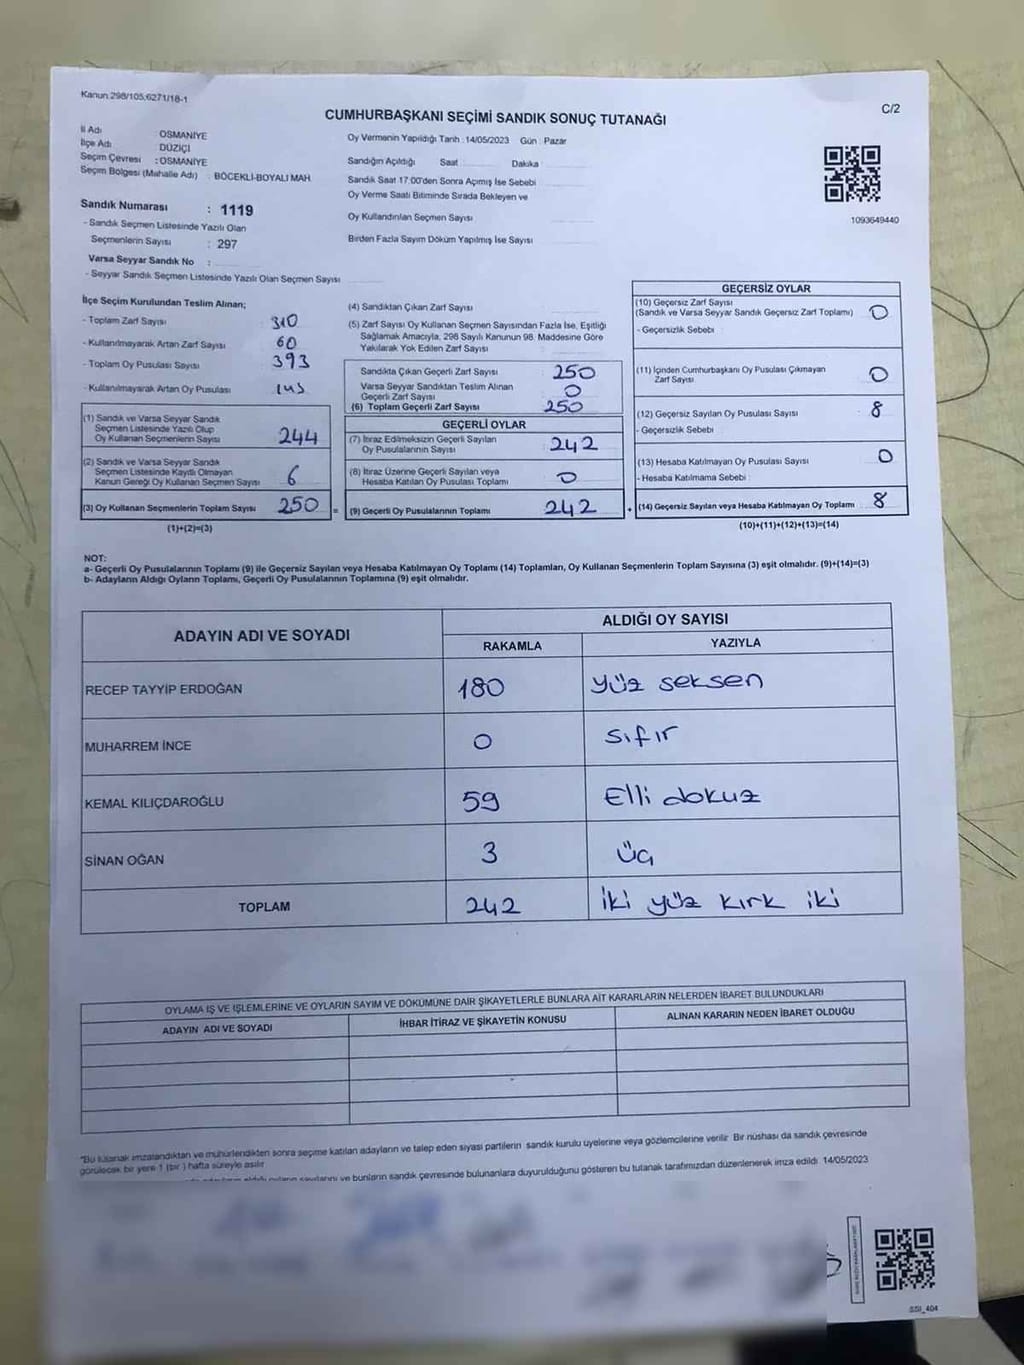 Kanun 298/105;6271/18-1
C/2
CUMHURBAŞKANI SEÇİMİ SANDIK SONUÇ TUTANAĞI
İl Adı OSMANİYE
İlçe Adı DÜZİÇİ
Seçim Çevresi : OSMANİYE
Seçim Bölgesi (Mahalle Adı) : BÖCEKLİ-BOYALI MAH.
Sandık Numarası : 1119
- Sandık Seçmen Listesinde Yazılı Olan
Seçmenlerin Sayısı : 297
Varsa Seyyar Sandık No :
- Seyyar Sandık Seçmen Listesinde Yazılı Olan Seçmen Sayısı
Oy Vermenin Yapıldığı Tarih : 14/05/2023 Gün : Pazar
Sandığın Açıldığı Saat Dakika
Sandık Saat 17:00'den Sonra Açımış İse Sebebi
Oy Verme Saati Bitiminde Sırada Bekleyen ve
Oy Kullandırılan Seçmen Sayısı
Birden Fazla Sayım Döküm Yapılmış İse Sayısı
1093649440
İlçe Seçim Kurulundan Teslim Alınan;
- Toplam Zarf Sayısı 310
- Kullanılmayarak Artan Zarf Sayısı : 60
- Toplam Oy Pusulası Sayısı 393
- Kullanılmayarak Artan Oy Pusulası
(1) Sandık ve Varsa Seyyar Sandık
Seçmen Listesinde Yazılı Olup
Oy Kullanan Seçmenlerin Sayısı 244
(2) Sandık ve Varsa Seyyar Sandık
Seçmen Listesinde Kayıtlı Olmayan
Kanun Gereği Oy Kullanan Seçmen Sayısı 6
(3) Oy Kullanan Seçmenlerin Toplam Sayısı 250
(1)+(2)=(3)
(4) Sandıktan Çıkan Zarf Sayısı
(5) Zarf Sayısı Oy Kullanan Seçmen Sayısından Fazla İse, Eşitliği
Sağlamak Amacıyla, 298 Sayılı Kanunun 98. Maddesine Göre
Yakılarak Yok Edilen Zarf Sayısı
Sandıkta Çıkan Geçerli Zarf Sayısı 250
Varsa Seyyar Sandıktan Teslim Alınan
Geçerli Zarf Sayısı 0
(6) Toplam Geçerli Zarf Sayısı 250
GEÇERLİ OYLAR
(7) İtiraz Edilmeksizin Geçerli Sayılan
Oy Pusulalarının Sayısı 242
(8) İtiraz Üzerine Geçerli Sayılan veya
Hesaba Katılan Oy Pusulası Toplamı 0
= (9) Geçerli Oy Pusulalarının Toplamı 242
GEÇERSİZ OYLAR
(10) Geçersiz Zarf Sayısı
(Sandık ve Varsa Seyyar Sandık Geçersiz Zarf Toplamı) 0
- Geçersizlik Sebebi
(11) İçinden Cumhurbaşkanı Oy Pusulası Çıkmayan
Zarf Sayısı 0
(12) Geçersiz Sayılan Oy Pusulası Sayısı 8
- Geçersizlik Sebebi
(13) Hesaba Katılmayan Oy Pusulası Sayısı 0
- Hesaba Katılmama Sebebi
+ (14) Geçersiz Sayılan veya Hesaba Katılmayan Oy Toplamı 8
(10)+(11)+(12)+(13)=(14)
NOT:
a- Geçerli Oy Pusulalarının Toplamı (9) ile Geçersiz Sayılan veya Hesaba Katılmayan Oy Toplamı (14) Toplamları, Oy Kullanan Seçmenlerin Toplam Sayısına (3) eşit olmalıdır. (9)+(14)=(3)
b- Adayların Aldığı Oyların Toplamı, Geçerli Oy Pusulalarının Toplamına (9) eşit olmalıdır.
ADAYIN ADI VE SOYADI
ALDIĞI OY SAYISI
RAKAMLA YAZIYLA
RECEP TAYYİP ERDOĞAN 180 Yüz seksen
MUHARREM İNCE 0 Sıfır
KEMAL KILIÇDAROĞLU 59 Elli dokuz
SİNAN OĞAN 3 Üç
TOPLAM 242 İki yüz kırk iki
OYLAMA İŞ VE İŞLEMLERİNE VE OYLARIN SAYIM VE DÖKÜMÜNE DAİR ŞİKAYETLERLE BUNLARA AİT KARARLARIN NELERDEN İBARET BULUNDUKLARI
ADAYIN ADI VE SOYADI İHBAR İTİRAZ VE ŞİKAYETİN KONUSU ALINAN KARARIN NEDEN İBARET OLDUĞU
*Bu tutanak imzalandıktan ve mühürlendikten sonra seçime katılan adayların ve talep eden siyasi partilerin sandık kurulu üyelerine veya gözlemcilerine verilir. Bir nüshası da sandık çevresinde
görülecek bir yere 1 (bir) hafta süreyle asılır.
oyların sayılarını ve bunların sandık çevresinde bulunanlara duyurulduğunu gösteren bu tutanak tarafımızdan düzenlenerek imza edildi. 14/05/2023
SSI_404